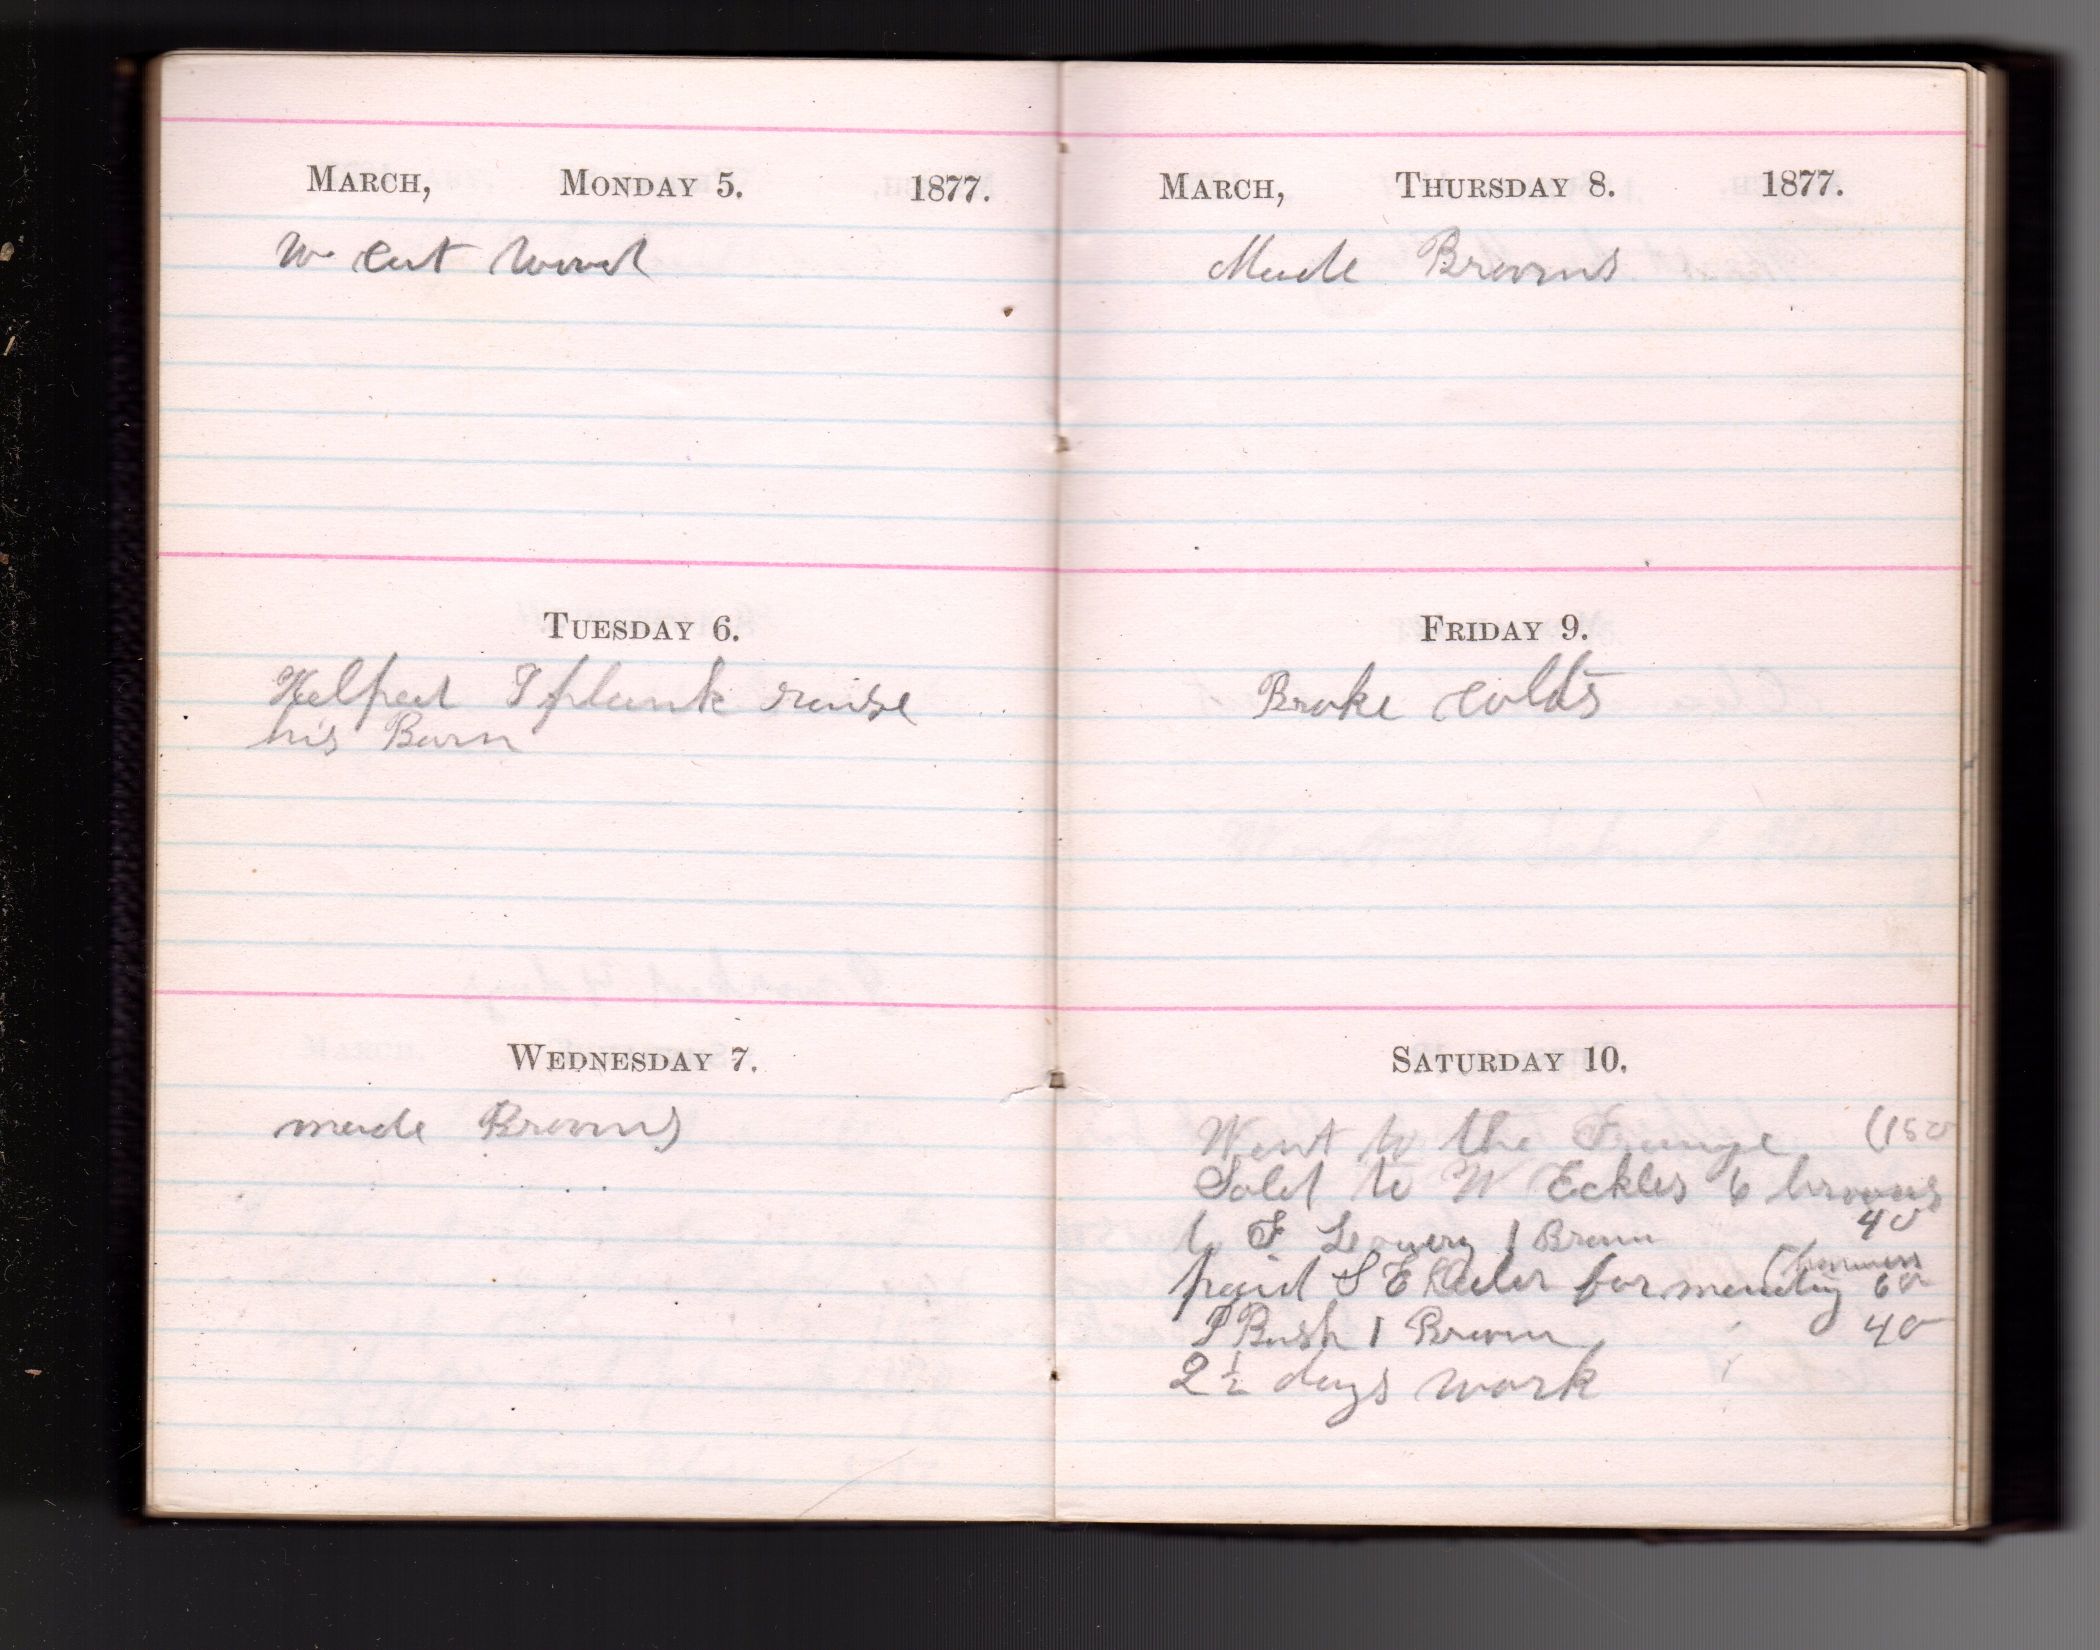 MARCH, MONDAY 5. 1877.
We Cut Wood
TUESDAY 6.
Helped I plank raise
his Barn
WEDNESDAY 7.
made Brooms
MARCH, THURSDAY 8. 1877.
Made Brooms
FRIDAY 9.
Broke colts
SATURDAY 10.
Went to the (150
Sold to W Eckles 6 brooms
to F Lowery 1 Broom 40
(harness
paid S E for mending 60
P Bush 1 Broom 40
2½ days work